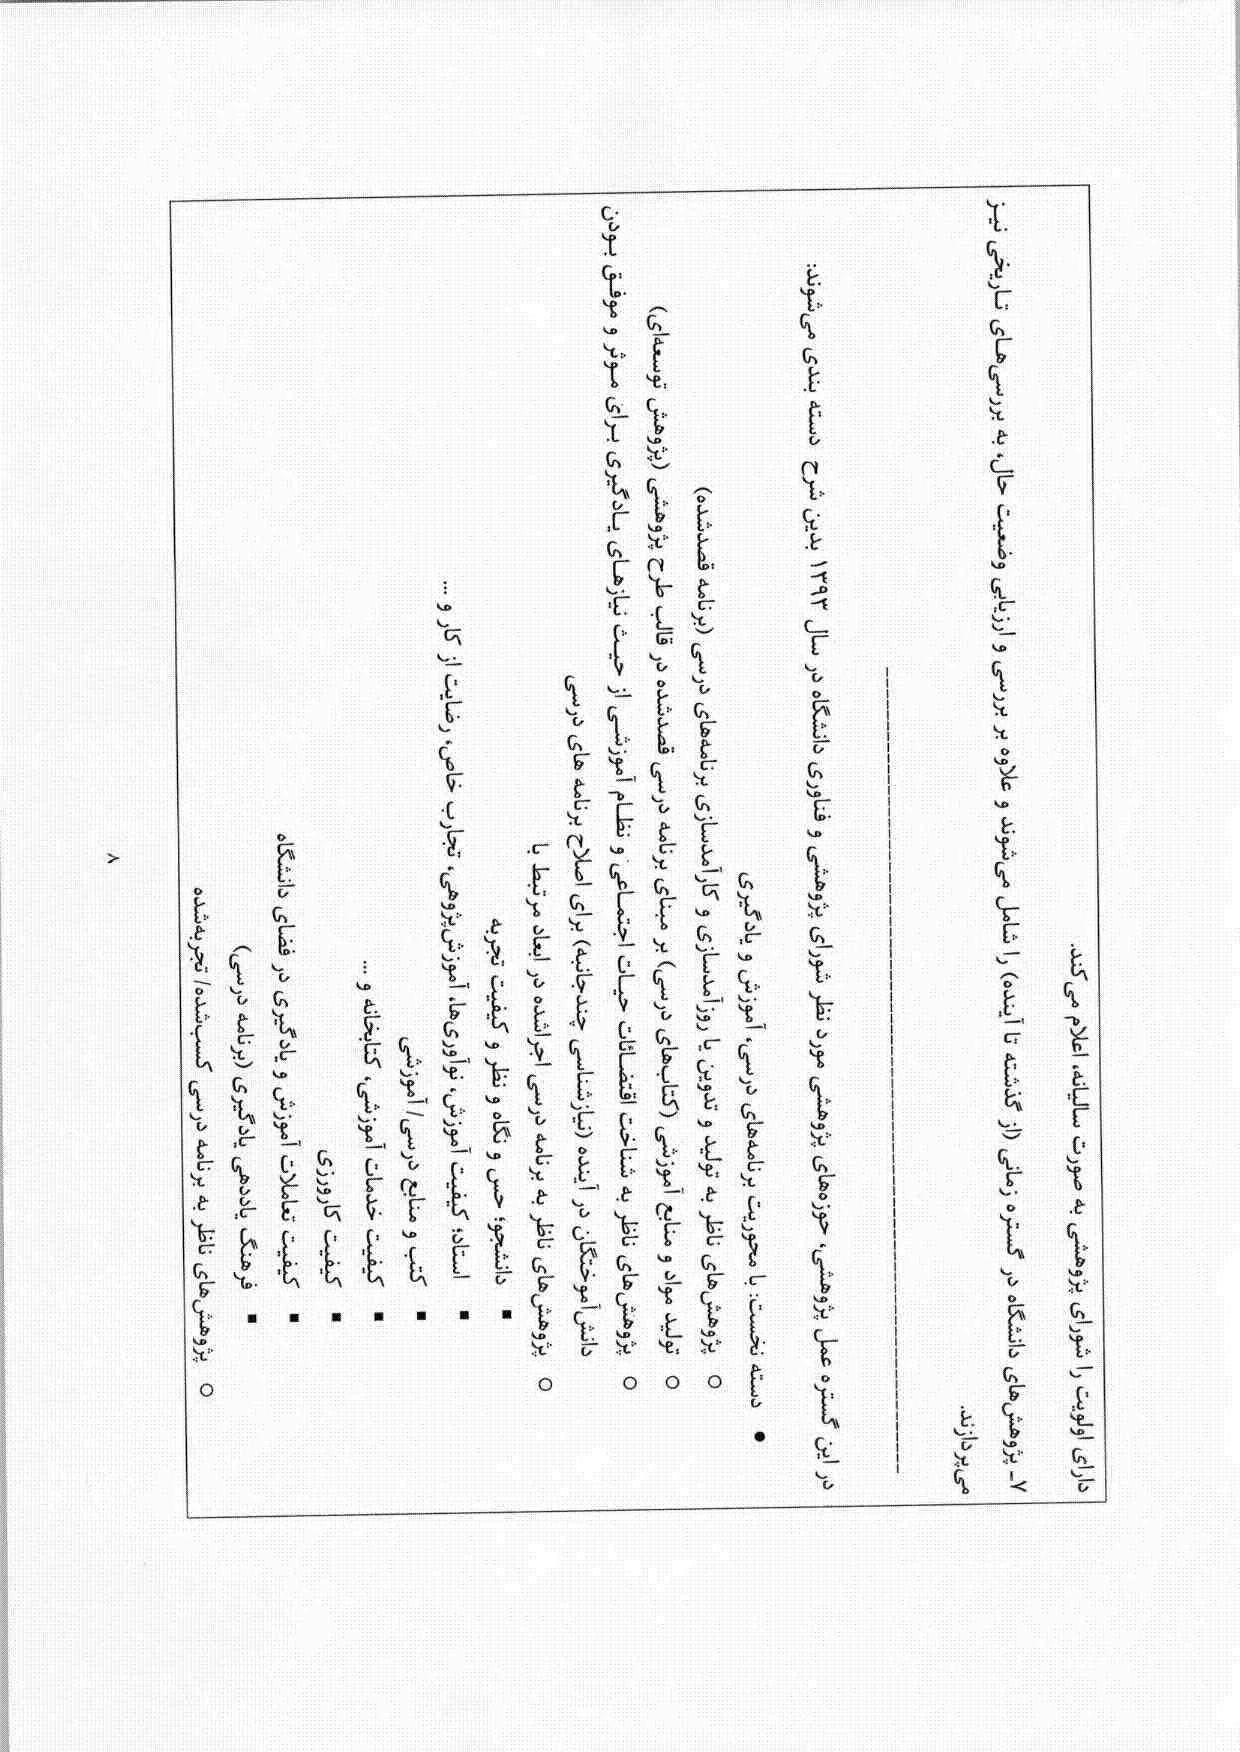 دارای اولویت را شورای پژوهشی به صورت سالیانه، اعلام می‌کند.
۷ـ پژوهش‌های دانشگاه در گستره زمانی (از گذشته تا آینده) را شامل می‌شوند و علاوه بر بررسی و ارزیابی وضعیت حال، به بررسی‌های تاریخی نیز
می‌پردازند.
در این گستره عمل پژوهشی، حوزه‌های پژوهشی مورد نظر شورای پژوهشی و فناوری دانشگاه در سال ۱۳۹۳ بدین شرح دسته بندی می‌شوند:
● دسته نخست: با محوریت برنامه‌های درسی، آموزش و یادگیری
○ پژوهش‌های ناظر به تولید و تدوین یا روزآمدسازی و کارآمدسازی برنامه‌های درسی (برنامه قصدشده)
○ تولید مواد و منابع آموزشی (کتاب‌های درسی) بر مبنای برنامه درسی قصدشده در قالب طرح پژوهشی (پژوهش توسعه‌ای)
○ پژوهش‌های ناظر به شناخت اقتضائات حیات اجتماعی و نظام آموزشی از حیث نیازهای یادگیری برای موثر و موفق بودن
دانش‌آموختگان در آینده (نیازشناسی چندجانبه) برای اصلاح برنامه های درسی
○ پژوهش‌های ناظر به برنامه درسی اجراشده در ابعاد مرتبط با
▪ دانشجو؛ حس و نگاه و نظر و کیفیت تجربه
▪ استاد؛ کیفیت آموزش، نوآوری‌ها، آموزش‌پژوهی، تجارب خاص، رضایت از کار و ...
▪ کتب و منابع درسی/ آموزشی
▪ کیفیت خدمات آموزشی، کتابخانه و ...
▪ کیفیت کارورزی
▪ کیفیت تعاملات آموزش و یادگیری در فضای دانشگاه
▪ فرهنگ یاددهی یادگیری (برنامه درسی)
○ پژوهش‌های ناظر به برنامه درسی کسب‌شده/ تجربه‌شده
۸